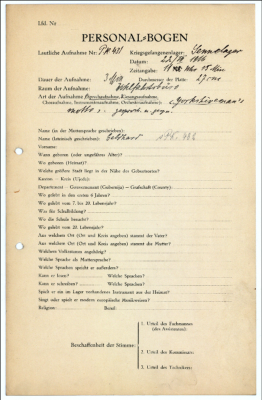 Lfd. Nr
PERSONAL-BOGEN
Lautliche Aufnahme Nr: PK 431
Kriegsgefangenenlager: Sennelager
Datum: 1916
Zeitangabe:
Dauer der Aufnahme: 3 Min
Durchmesser der Platte: 27 cm
Raum der Aufnahme:
Art der Aufnahme (Sprechaufnahme, Gesangsaufnahme,
Choraufnahme, Instrumentenaufnahme, Orchesteraufnahme): (Yorkshireman's
motto):
Name (in der Muttersprache geschrieben):
Name (lateinisch geschrieben):
Vorname:
Wann geboren (oder ungefähres Alter)?
Wo geboren (Heimat)?
Welche größere Stadt liegt in der Nähe des Geburtsortes?
Kanton – Kreis (Ujezd):
Department – Gouvernement (Gubernija) – Grafschaft (County):
Wo gelebt in den ersten 6 Jahren?
Wo gelebt vom 7. bis 20. Lebensjahr?
Was für Schulbildung?
Wo die Schule besucht?
Wo gelebt vom 20. Lebensjahr?
Aus welchem Ort (Ort und Kreis angeben) stammt der Vater?
Aus welchem Ort (Ort und Kreis angeben) stammt die Mutter?
Welchem Volksstamm angehörig?
Welche Sprache als Muttersprache?
Welche Sprachen spricht er außerdem?
Kann er lesen? Welche Sprachen?
Kann er schreiben? Welche Sprachen?
Spielt er ein im Lager vorhandenes Instrument aus der Heimat?
Singt oder spielt er modern europäische Musikweisen?
Religion: Beruf:
Beschaffenheit der Stimme:
1. Urteil des Fachmannes
(des Assistenten):
2. Urteil des Kommissars:
3. Urteil des Technikers: